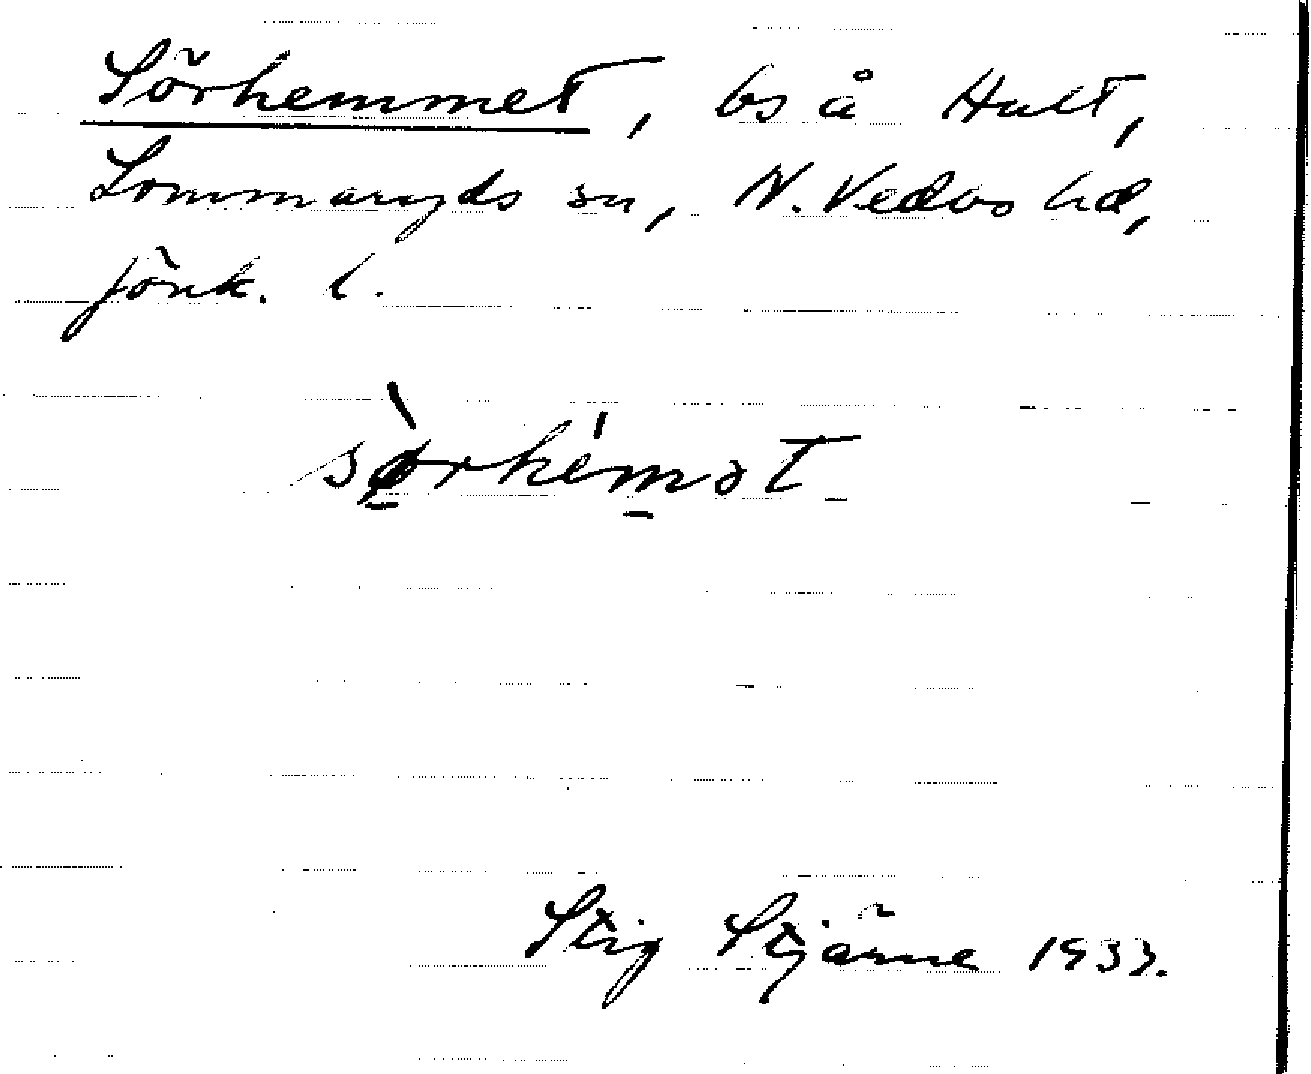 Sörhemmet, bs å Hult,
Lommaryds sn, N. Vedbo hd,
Jönk. l.
sø̀rhémət
Stig Stjärne 1933.